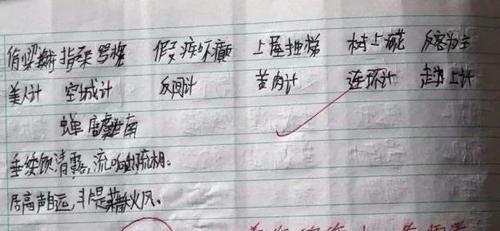 偷梁换柱 指桑骂槐 假痴不癫 上屋抽梯 树上开花 反客为主
美人计 空城计 反间计 苦肉计 连环计 走为上计
蝉 虞世南
垂緌饮清露，流响出疏桐。
居高声自远，非是藉秋风。